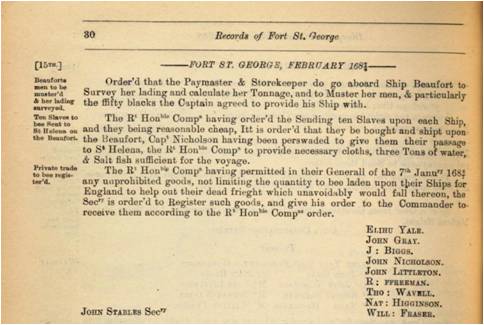 30
Records of Fort St. George
[15TH.]
FORT ST. GEORGE, FEBRUARY
Beauforts
men to be
muster'd
& her lading
surveyed.
Order'd that the Paymaster & Storekeeper do go aboard Ship Beaufort to
Survey her lading and calculate her Tonnage, and to Muster her men, & particularly
the ffifty blacks the Captain agreed to provide his Ship with.
Ten Slaves to
bee Sent to
St Helena on
the Beaufort.
The Rt Honble Compa having order'd the Sending ten Slaves upon each Ship,
and they being reasonable cheap, Itt is order'd that they be bought and shipt upon
the Beaufort, Capt Nicholson having been perswaded to give them their passage
to St Helena, the Rt Honble Compa to provide necessary cloths, three Tons of water,
& Salt fish sufficient for the voyage.
Private trade
to bee regis-
ter'd.
The Rt Honble Compa having permitted in their Generall of the 7th Janury
any unprohibited goods, not limiting the quantity to bee laden upon their Ships for
England to help out their dead freight which unavoidably would fall thereon, the
Secry is order'd to Register such goods, and give his order to the Commander to
receive them according to the Rt Honble Compas order.
ELIHU YALE.
JOHN GRAY.
J : BIGGS.
JOHN NICHOLSON.
JOHN LITTLETON.
R : FFREEMAN.
THO : WAVELL.
NAT : HIGGINSON.
WILL : FRASER.
JOHN STABLES Secry